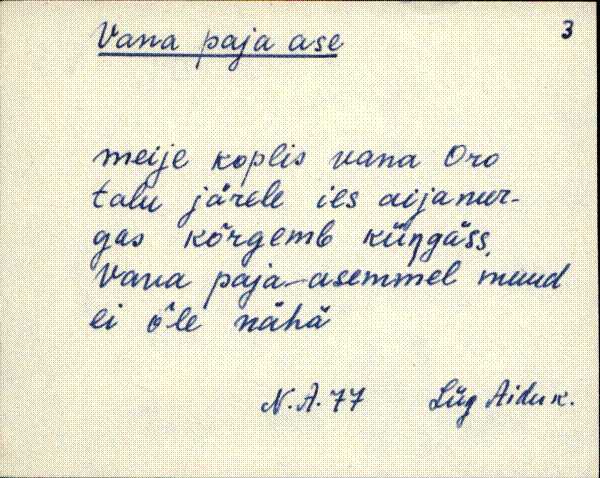 Vana paja ase 3
meije koplis vana Oro
talu järele ies aijanur-
gas kõrgemb küŋgäss,
vana paja-asemmel muud
ei ô̭le nähä
N. A. 77 Lüg Aidu k.